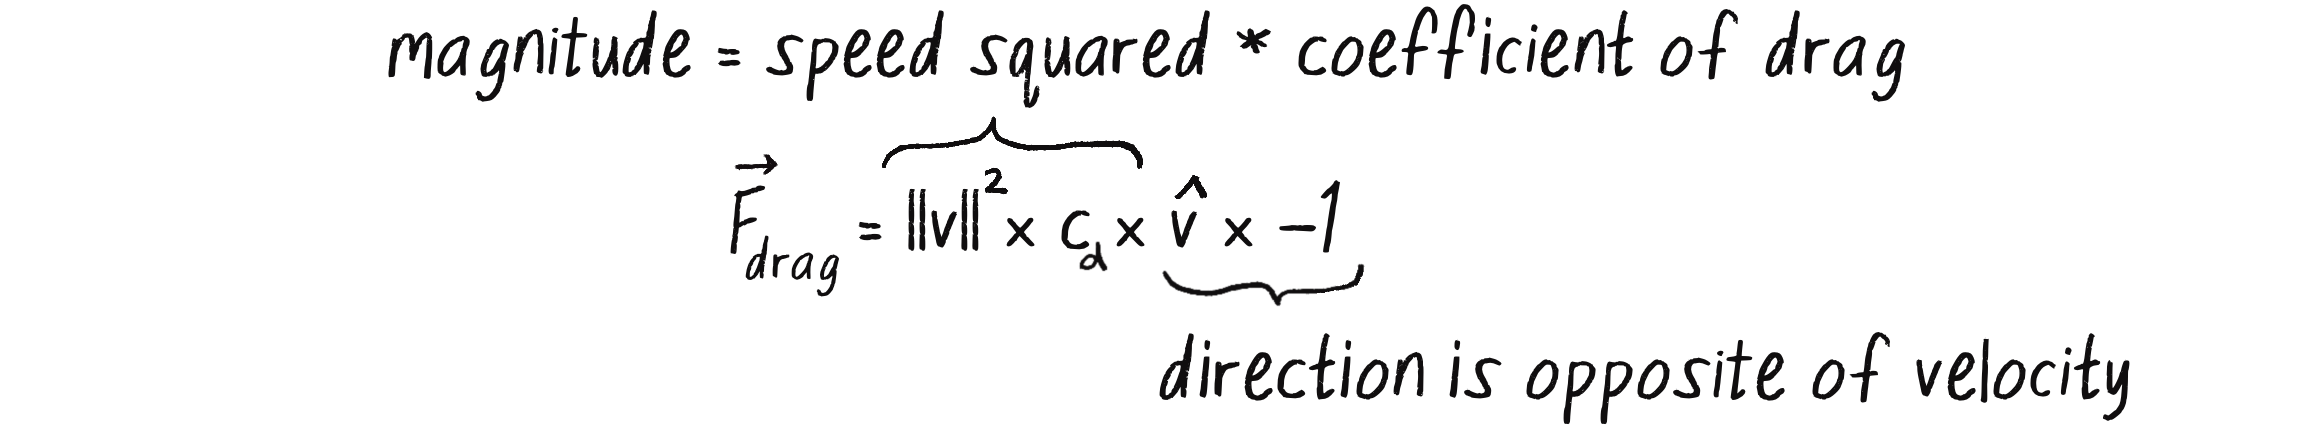 magnitude = speed squared * coefficient of drag
F⃗drag = ||v||² × cd × v̂ × -1
direction is opposite of velocity